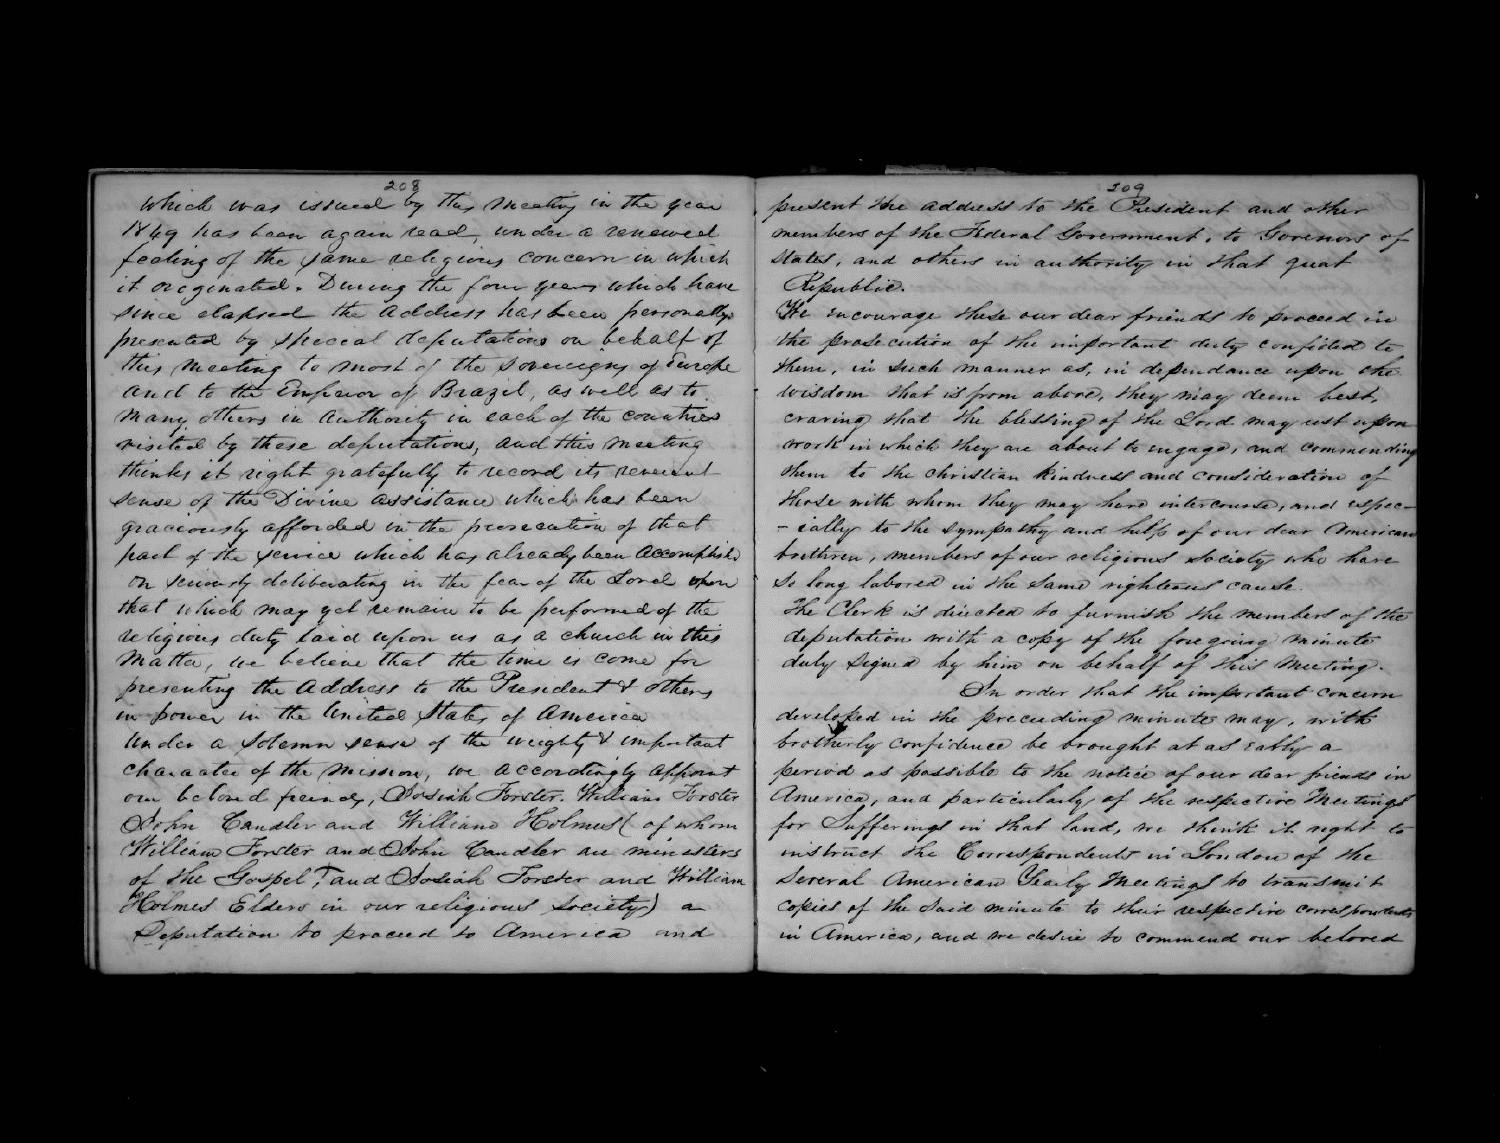 208
which was issued by this Meeting in the year
1849 has been again read, under a renewed
feeling of the same religious concern in which
it originated. During the four years which have
since elapsed the Address has been personally
presented by special deputations on behalf of
this Meeting to most of the Sovereigns of Europe
and to the Emperor of Brazil, as well as to
many others in Authority in each of the countries
visited by these deputations, and this meeting
thinks it right gratefully to record its reverent
sense of the Divine assistance which has been
graciously afforded in the prosecution of that
part of the service which has already been accomplish
on seriously deliberating in the fear of the Lord upon
that which may yet remain to be performed of the
religious duty laid upon us as a church in this
Matter, we believe that the time is come for
presenting the Address to the President & others
in power in the United States of America
Under a solemn sense of the weighty & important
character of the Mission, we accordingly appoint
our beloved friends, Josiah Forster. William Forster
John Candler and William Holmes (of whom
William Forster and John Candler are ministers
of the Gospel, and Josiah Forster and William
Holmes Elders in our religious Society) a
Deputation to proceed to America and
209
present the address to the President and other
members of the Federal Government, to Govenors of
States, and others in authority in that great
Republic.
We encourage these our dear friends to proceed in
the prosecution of the important duty confided to
them, in such manner as, in dependance upon the
wisdom that is from above, they may deem best,
craving that the blessing of the Lord may rest upon
work in which they are about to engage, and commending
them to the christian kindness and consideration of
those with whom they may have intercourse, and espec-
-ially to the sympathy and help of our dear American
brethren, members of our religious Society who have
so long labored in the same righteous cause.
The Clerk is directed to furnish the members of the
deputation with a copy of the foregoing minute
duly signed by him on behalf of this Meeting.
In order that the important concern
developed in the preceeding minute may, with
brotherly confidence be brought at as eably a
period as possible to the notice of our dear friends in
America, and particularly of the respective Meetings
for Sufferings in that land, we think it right to
instruct the Correspondents in London of the
several American Yearly Meetings to transmit
copies of the said minute to their respective correspondents
in America, and we desire to commend our beloved